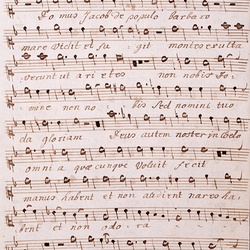 Domus Jacob de populo barbaro
mare vidit et fugit montes exulta
verunt ut arietes non nobis Do
mine non no bis Sed nomini tuo
da gloriam Deus autem noster in coelo
omnia quæcunque voluit fecit
manus habent et non
bunt et non odora